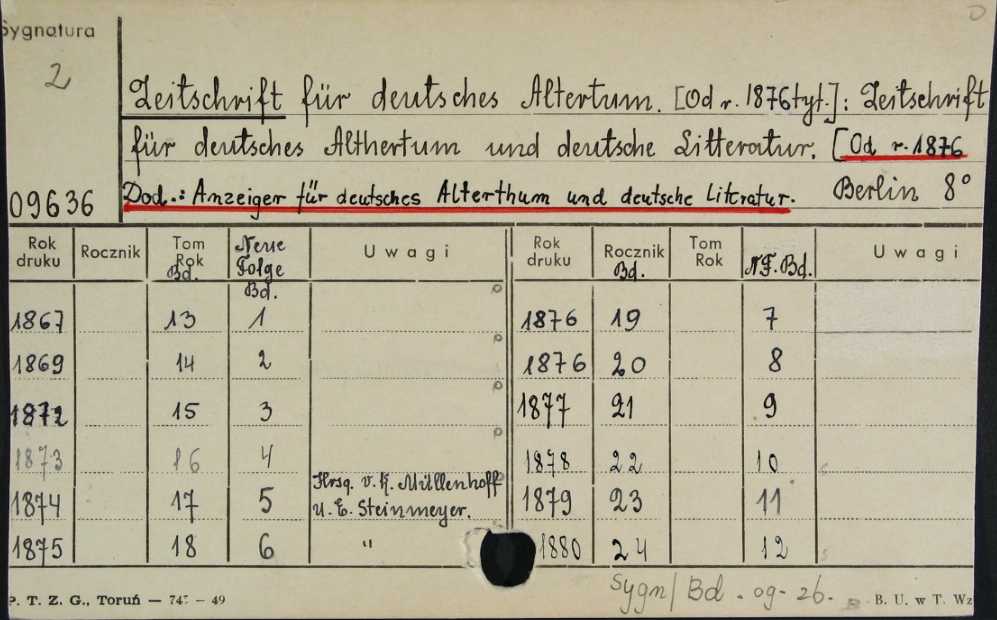 Sygnatura
2
09636
Zeitschrift für deutsches Altertum. [Od r. 1876 tyt.]: Zeitschrift
für deutsches Althertum und deutsche Litteratur. [Od r. 1876
Dod.: Anzeiger für deutsches Alterthum und deutsche Literatur. Berlin 8°
Rok druku Rocznik Tom Rok Bd. Neue Folge Bd. Uwagi Rok druku Rocznik Bd. Tom Rok N.F. Bd. Uwagi
1867 13 1 1876 19 7
1869 14 2 1876 20 8
1872 15 3 1877 21 9
1873 16 4 1878 22 10
1874 17 5 Hrsg. v. K. Müllenhoff u. E. Steinmeyer. 1879 23 11
1875 18 6 " 1880 24 12
Sygn/ Bd. 09-26.
P. T. Z. G., Toruń — 49 B. U. w T. Wz